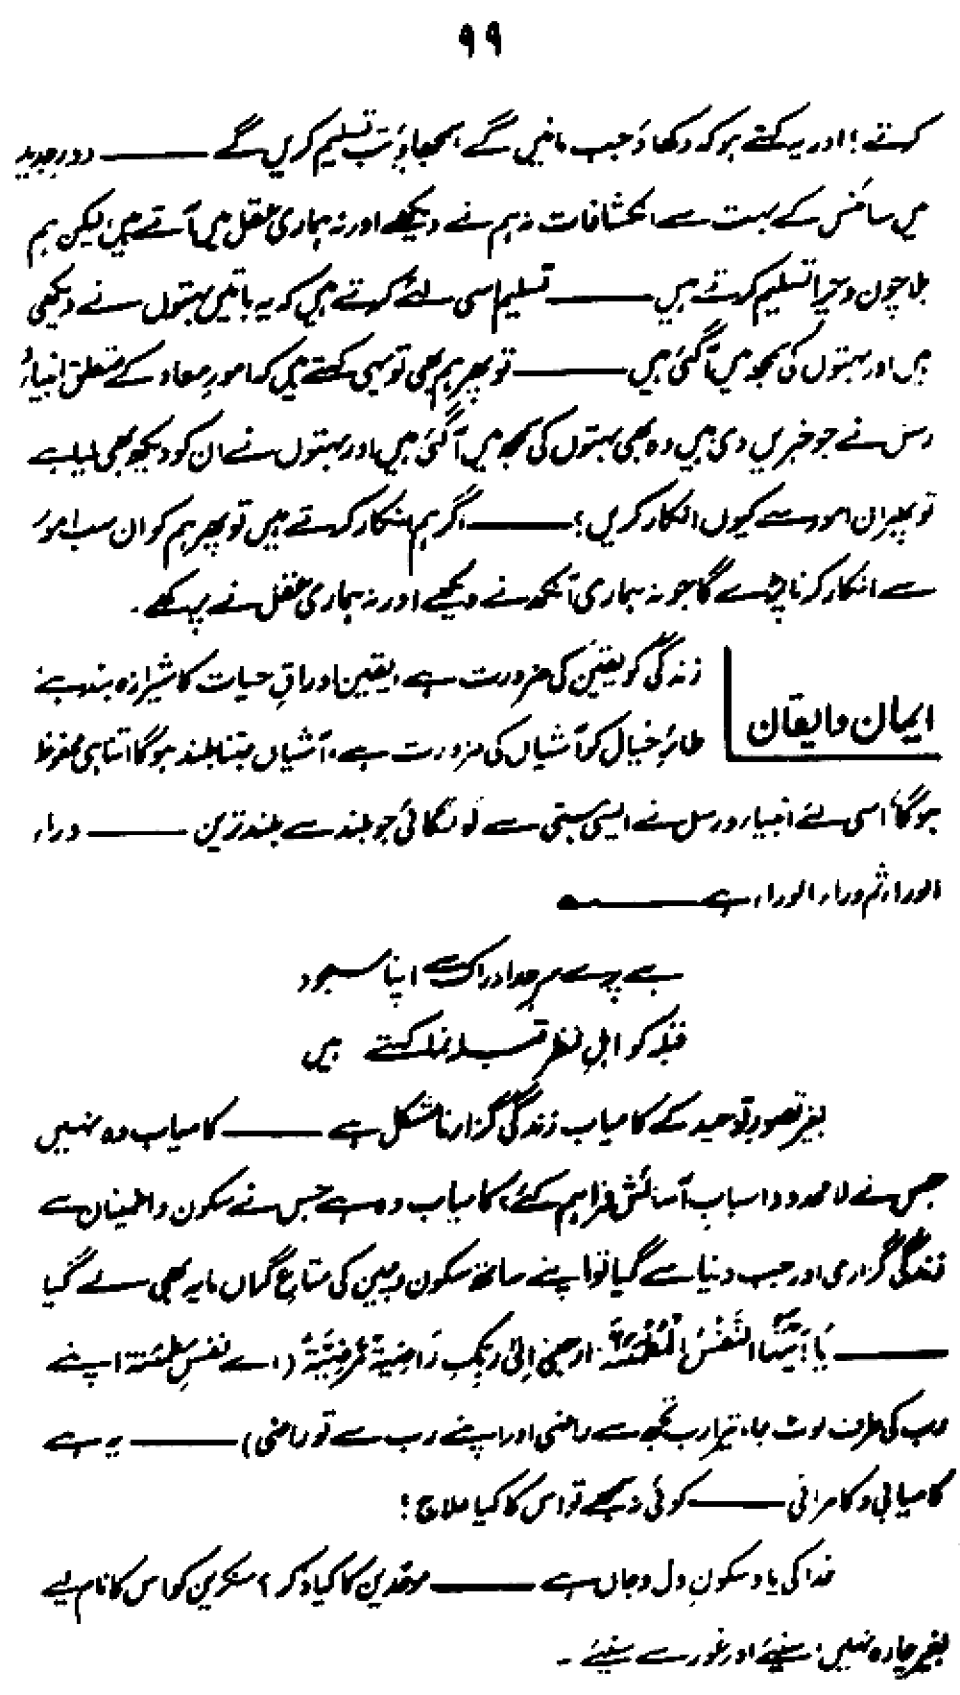 ۹۹
کرتے! اور یہ کہتے ہو کہ دکھاؤ جب مانیں گے سمجھاؤ تب تسلیم کریں گے ——— دورِ جدید
میں سائنس کے بہت سے انکشافات نہ ہم نے دیکھے اور نہ ہماری عقل میں آتے ہیں لیکن ہم
بلا چون و چرا تسلیم کرتے ہیں ——— تسلیم اسی لئے کرتے ہیں کہ یہ باتیں بہتوں نے دیکھی
ہیں اور بہتوں کی سمجھ میں آ گئی ہیں ——— تو پھر ہم بھی تو یہی کہتے ہیں کہ امورِ معاد کے متعلق انبیاءُ
رسل نے جو خبریں دی ہیں وہ بھی بہتوں کی سمجھ میں آ گئی ہیں اور بہتوں نے ان کو دیکھ بھی لیا ہے
تو پھر ان امور سے کیوں انکار کریں؟ ——— اگر ہم انکار کرتے ہیں تو پھر ہم کو ان سب امور
سے انکار کرنا پڑے گا جو نہ ہماری آنکھ نے دیکھے اور نہ ہماری عقل نے پرکھے۔
ایمان و ایقان
زندگی کو یقین کی ضرورت ہے، یقین اوراقِ حیات کا شیرازہ بند ہے
طائرِ خیال کو آشیاں کی ضرورت ہے، آشیاں جتنا بلند ہوگا اتنا ہی محفوظ
ہوگا، اسی لئے انبیاء و رسل نے ایسی ہستی سے لو لگائی جو بلند سے بلند ترین ——— وراء
الوراء ثم وراء الوراء ہے ———
ہے پرے سرحدِ ادراک سے اپنا مسجود
قبلہ کو اہلِ نظر قبلہ نما کہتے ہیں
بغیر تصورِ توحید کے کامیاب زندگی گزارنا مشکل ہے ——— کامیاب وہ نہیں
جس نے لامحدود اسبابِ آسائش فراہم کئے، کامیاب وہ ہے جس نے سکون و اطمینان سے
زندگی گزاری اور جب دنیا سے گیا تو اپنے ساتھ سکون و چین کی متاعِ گراں مایہ بھی لے گیا
——— یَا اَیَّتُهَا النَّفْسُ الْمُطْمَئِنَّةُ ارجعی اِلیٰ رَبِّكِ رَاضِیَةً مَّرْضِیَّةً (اے نفسِ مطمئنہ اپنے
رب کی طرف لوٹ جا، تیرا رب تجھ سے راضی اور اپنے رب سے تو راضی) ——— یہ ہے
کامیابی و کامرانی ——— کوئی نہ سمجھے تو اس کا کیا علاج!
خدا کی یاد سکونِ دل و جاں ہے ——— موحدین کا کیا ذکر؟ منکرین کو اس کا نام لیے
بغیر چارہ نہیں، سنیئے اور غور سے سنیئے۔